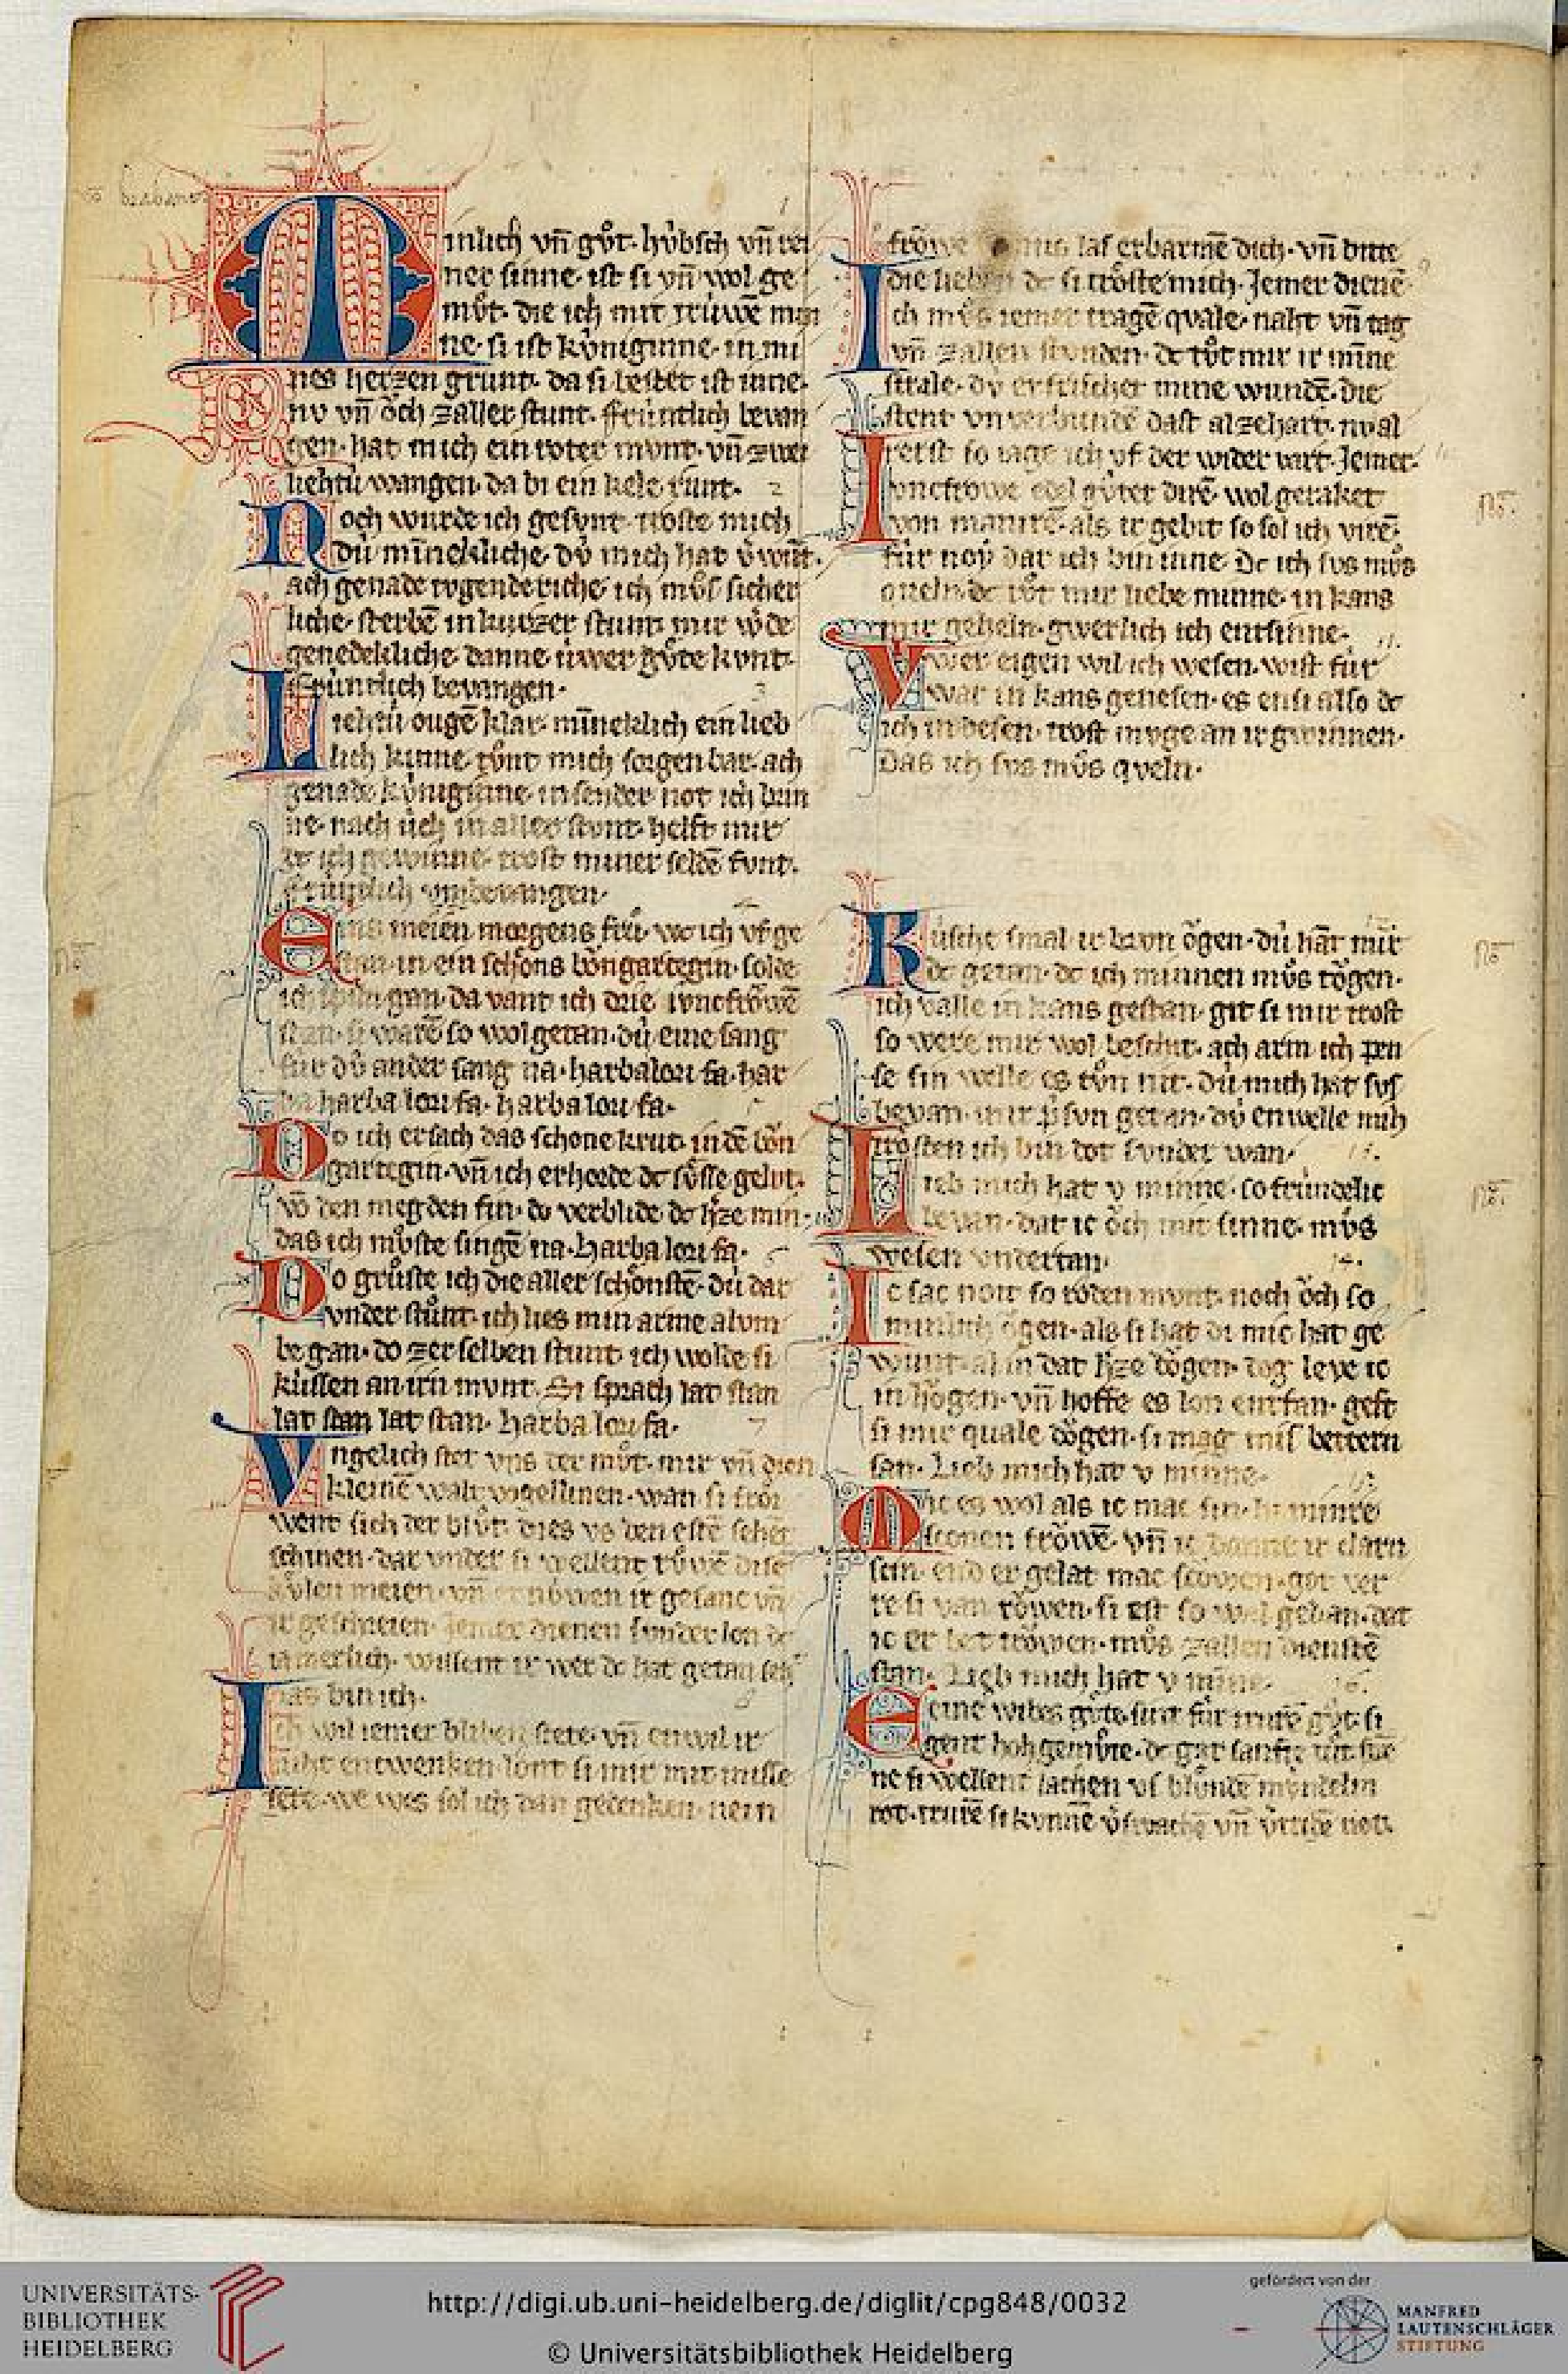 Minlich vn̄ gůt· hv̍bsch vn̄ rei
ner sinne· ist si vn̄ wol ge
mv̊t· die ich mit trúwē mei
ne· si ist kv́niginne· in mi
nes herzen grunt· da si beslet ist inne·
nv vn̄ ŏch zaller stunt· frúntlich bevan
gen· hat mich ein roter mvnt· vn̄ zwei
liehtú wangen· da bi ein kele runt· 2
Noch wurde ich gesvnt· troste mich
dú mīnekliche· dv́ mich hat v̓wūt·
ach genade tvgenderiche· ich mv̊s sicher
liche· sterbē in kurzer stunt· mir w̓de
genedekliche· danne úwer gv̊te kvnt·
Frúntlich bevangen· 3
Liehtú ougē klar· mīneklich ein lieb
lich kinne· tv̊nt mich sorgen bar· ach
genade kv́niginne· in sender not ich brin
ne· nach úch in aller stunt· helft mir
dc ich gewinne· trost miner seldē funt·
Frúntlich bevangen· 4
Eins meien morgens frů· wc ich vf ge
stan· in ein schons bŏngartegin· solde
ich spiln gan· da vant ich drie ivncfrŏwē
stan· si warē so wol getan· dú eine sang
fúr dú ander sang na· harbalorifa· har
ba harba lorifa· harba lorifa·
Do ich ersach das schone krut· in dē bŏn
gartegin· vn̄ ich erhorde dc sv̊sse gelvt·
vō den megden fin· do verblide dc h̓ze min·
das ich mv̊ste singē na· harba lorifa· 6
Do grůste ich die aller schŏnstē· dú dar
vnder stůnt· ich lies min arme al vm
be gan· do zer selben stunt· ich wolde si
kússen an irn mvnt· Si sprach lat stan
lat stan lat stan· harba lorifa· 7
Vngelich stet vns der mv̊t· mir vn̄ dien
kleinē walt vogellinen· wan si frŏi
went sich der blv̊t· dies vs den estē sehēt
schinen· dar vnder si wellent rv̊wē dise
kv̊len meien· vn̄ ernúwen ir gesanc vn̄
ir geschreien· Jemer dienen sunder lon dc
iamerlich· wissent ir wer dc hat getan seht
das bin ich· 8
Ich wil iemer bliben stete· vn̄ enwil ir
niht entwenken· lont si mir mit misse
tete· we wes sol ich dan gedenken· nein
frŏwe Venus las erbarmē dich· vn̄ bitte
die lieben dc si trŏste mich· Jemer dienē 9
Ich mv̊s iemer tragē qvale· naht vn̄ tag
vn̄ zallen stunden· dc tv̊t mir ir mīne
strale· dv́ erfrischet mine wundē· die
stent vnverbundē dast al zehart· nv al
rerst so iage ich vf der wider vart· Jemer· 10
Ivncfrowe edel gv̊ter dirē· wol geraket
von manirē· als ir gebit so sol ich virē·
fúr noy dar ich bin inne· Dc ich svs mv̊s
queln· dc tv̊t mir liebe minne· in kans
mir geheln· gwerlich ich entsinne· 11.
Vwer eigen wil ich wesen· wist fúr
war in kans genesen· es ensi also dc
ich in desen· trost mvge an ir gwinnen·
Das ich svs mv̊s qveln·
Kúsche smal ir brvn ŏgen· dú hāt mir
dc getan· dc ich minnen mv̊s tŏgen·
ich valle in kans gestan· git si mir trost
so were mir wol beschirt· ach arm ich pen
se sin welle es tv̊n nit· dú mich hat svs
bevan· mir p̓sun getan· dv́ enwelle mih
trŏsten ich bin dot sunder wan· 13.
Lieb mich hat v minne· so frúndelic
bevan· dat ic ŏch mit sinne· mv̊s
wesen vndertan· 14.
Ic sac noit so roden mvnt· noch ŏch so
minlich ŏgen· als si hat di mic hat ge
wunt· al in dat h̓ze dŏgen· dog leve ic
in hŏgen· vn̄ hoffe es lon entfan· geft
si mir quale dŏgen· si mag mis bettern
san· Lieb mich hat v minne· 15
Mic es wol als ic mac sin· bi minre
sconen frŏwē· vn̄ ic
sein· end er gelat mac scowen· got ver
re si van rŏwen· si est so wal getan· dat
ic er bet trŏwen· mv̊s zallen dienstē
stan· Lieb mich hat v minne· 16.
Reine wibes gv̊te sint fúr trurē gv̊t· si
gent hohgemv̊te· dc gar sanfte tv̊t· swē
ne si wellent lachen vs blv̊ndē mvndelin
rot· trurē si kvnnē v̓swachē vn̄ v̓tribē not·
UNIVERSITÄTS-
BIBLIOTHEK
HEIDELBERG
http://digi.ub.uni-heidelberg.de/diglit/cpg848/0032
© Universitätsbibliothek Heidelberg
gefördert von der
MANFRED
LAUTENSCHLÄGER
STIFTUNG